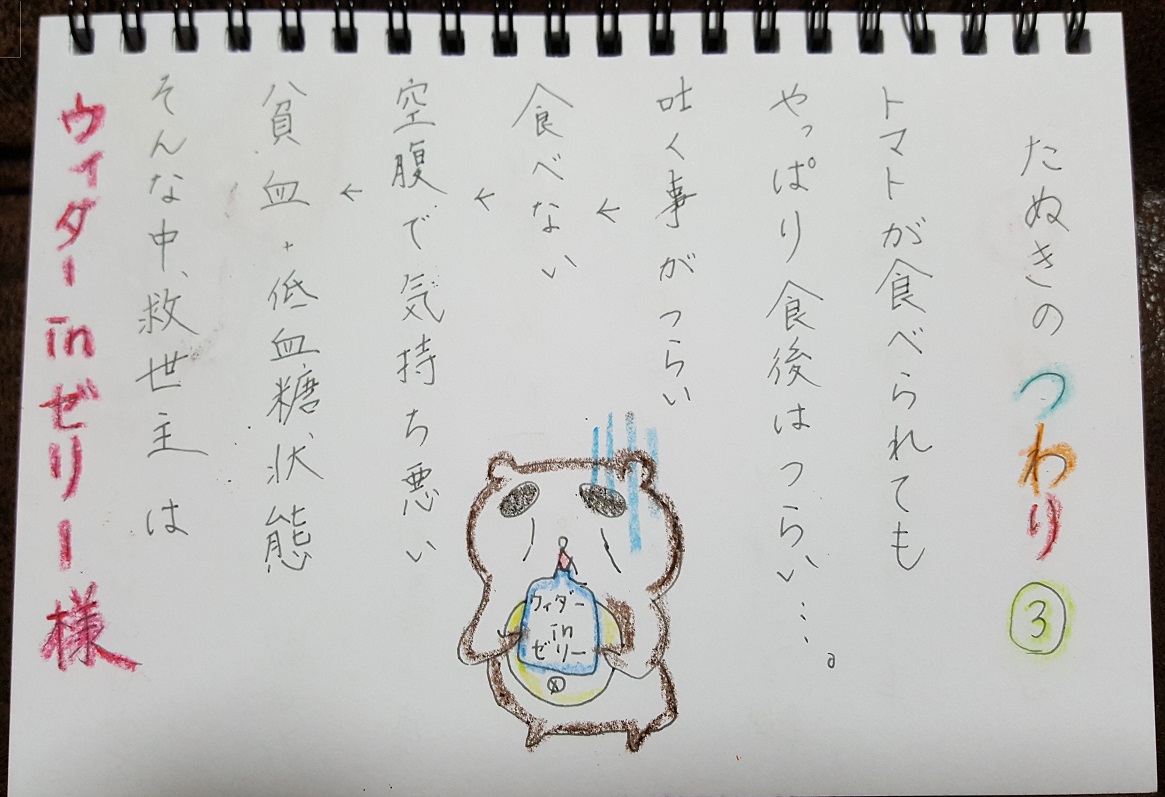 たぬきのつわり③
トマトが食べられても
やっぱり食後はつらい…。
吐く事がつらい
↓
食べない
↓
空腹で気持ち悪い
↓
貧血+低血糖状態
そんな中、救世主は
ウィダーinゼリー様
ウィダー
in
ゼリー